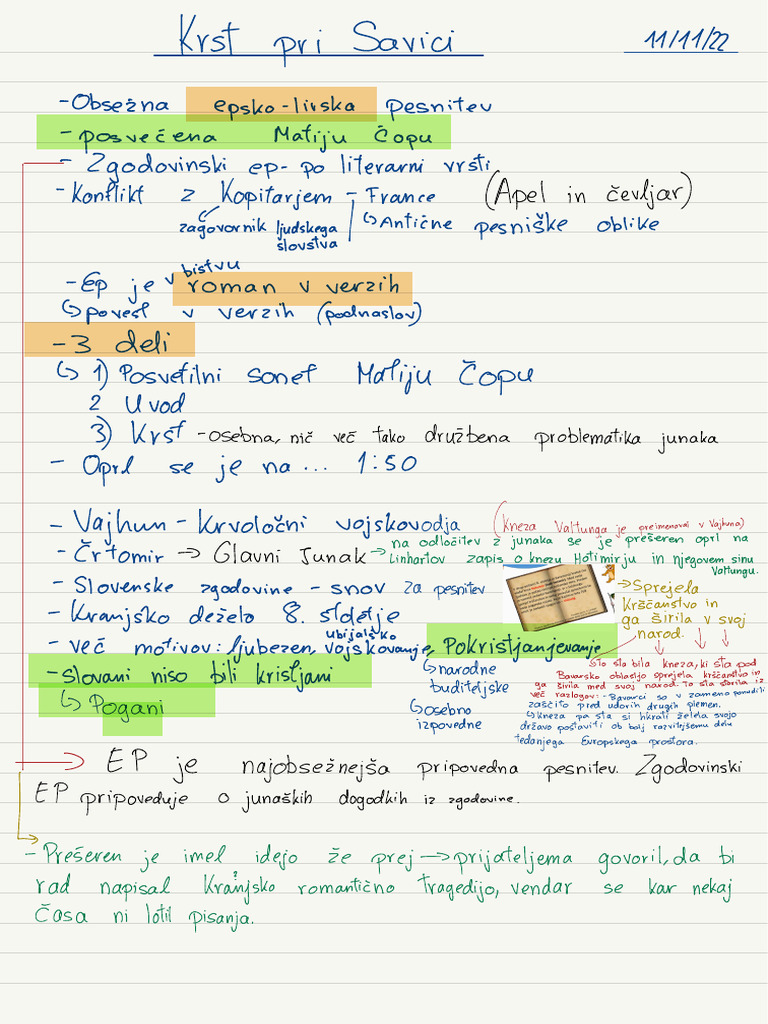 Krst pri Savici
11/11/22
- Obsežna epsko-lirska pesnitev
- posvečena Matiju Čopu
- Zgodovinski ep- po literarni vrsti
- Konflikt z Kopitarjem - France (Apel in čevljar)
zagovornik ljudskega slovstva
↳ Antične pesniške oblike
- Ep je v bistvu roman v verzih
↳ povest v verzih (podnaslov)
- 3 deli
↳ 1) Posvetilni sonet Matiju Čopu
2 Uvod
3) Krst - osebna, nič več tako družbena problematika junaka
- Oprl se je na... 1:50
- Vajhun - Krvoločni vojskovodja (Kneza Valtunga je preimenoval v Vajhuna)
- Črtomir → Glavni Junak → na odločitev z junaka se je prešeren oprl na
Linhartov zapis o knezu Hotimirju in njegovem sinu
Valtungu.
- Slovenske zgodovine - snov za pesnitev
- Kranjsko deželo 8. stoletje
- več motivov: ljubezen, ubijalsko vojskovanje, Pokristjanjevanje
↳ narodne
buditeljske
↳ osebno
izpovedne
→ Sprejela
Krščanstvo in
ga širila v svoj
narod.
Sta sta bila kneza, ki sta pod
Bavarsko oblastjo sprejela krščanstvo in
ga širila med svoj narod. To sta storila iz
več razlogov: - Bavarci so v zameno ponudili
zaščito pred udorih drugih plemen.
↳ Kneza pa sta si hkrati želela svojo
državo postaviti ob bolj razvitejšemu delu
tedanjega Evropskega prostora.
- Slovani niso bili kristjani
↳ Pogani
EP je najobsežnejša pripovedna pesnitev. Zgodovinski
EP pripoveduje o junaških dogodkih iz zgodovine.
- Prešeren je imel idejo že prej → prijateljema govoril, da bi
rad napisal Kranjsko romantično tragedijo, vendar se kar nekaj
časa ni lotil pisanja.